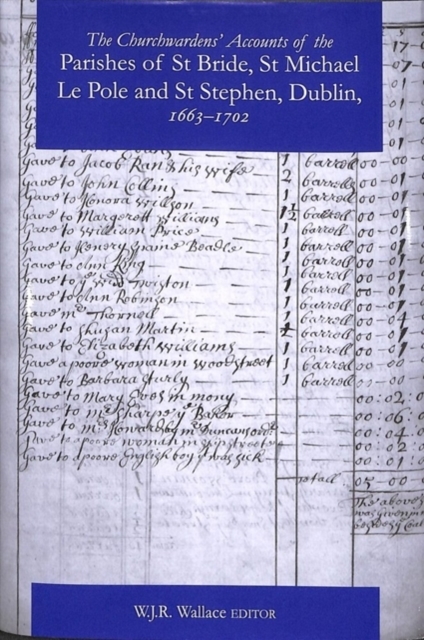 The Churchwardens' Accounts of the
Parishes of St Bride, St Michael
Le Pole and St Stephen, Dublin,
1663–1702
Gave to Jacob Ran & his wife 1 barrell 00-0
Gave to John Collins 2 barrells 00-01
Gave to Honora Willson 1 barrell 00-01
Gave to Margerett Williams 1½ barrell 00-01
Gave to William Price 1 barrell 00-01
Gave to Henery Beadle 1 barrell 00-01
Gave to Ann King 1 barrell 00-01
Gave to ye Twiston 1 barrell 00-01
Gave to Ann Robinson 1 barrell 00-07
Gave mr Thornell 1 barrell 00-04
Gave to Shusan Martin barrell 00-07
Gave to Elizabeth Williams 1 barrell 00-01
Gave a poore woman in woodstreet 1 barrell 00-00
Gave to Barbara 1 barrell 00-00
Gave to Mary Eves in mony 00:02:
Gave to mr Sharpe ye Baker 00:06:
Gave to mr 00:04:
a poore woman in 00:02
Gave to a poore English boy yt was sick 00:01:
totall 05-00
The above
was given
W.J.R. Wallace EDITOR